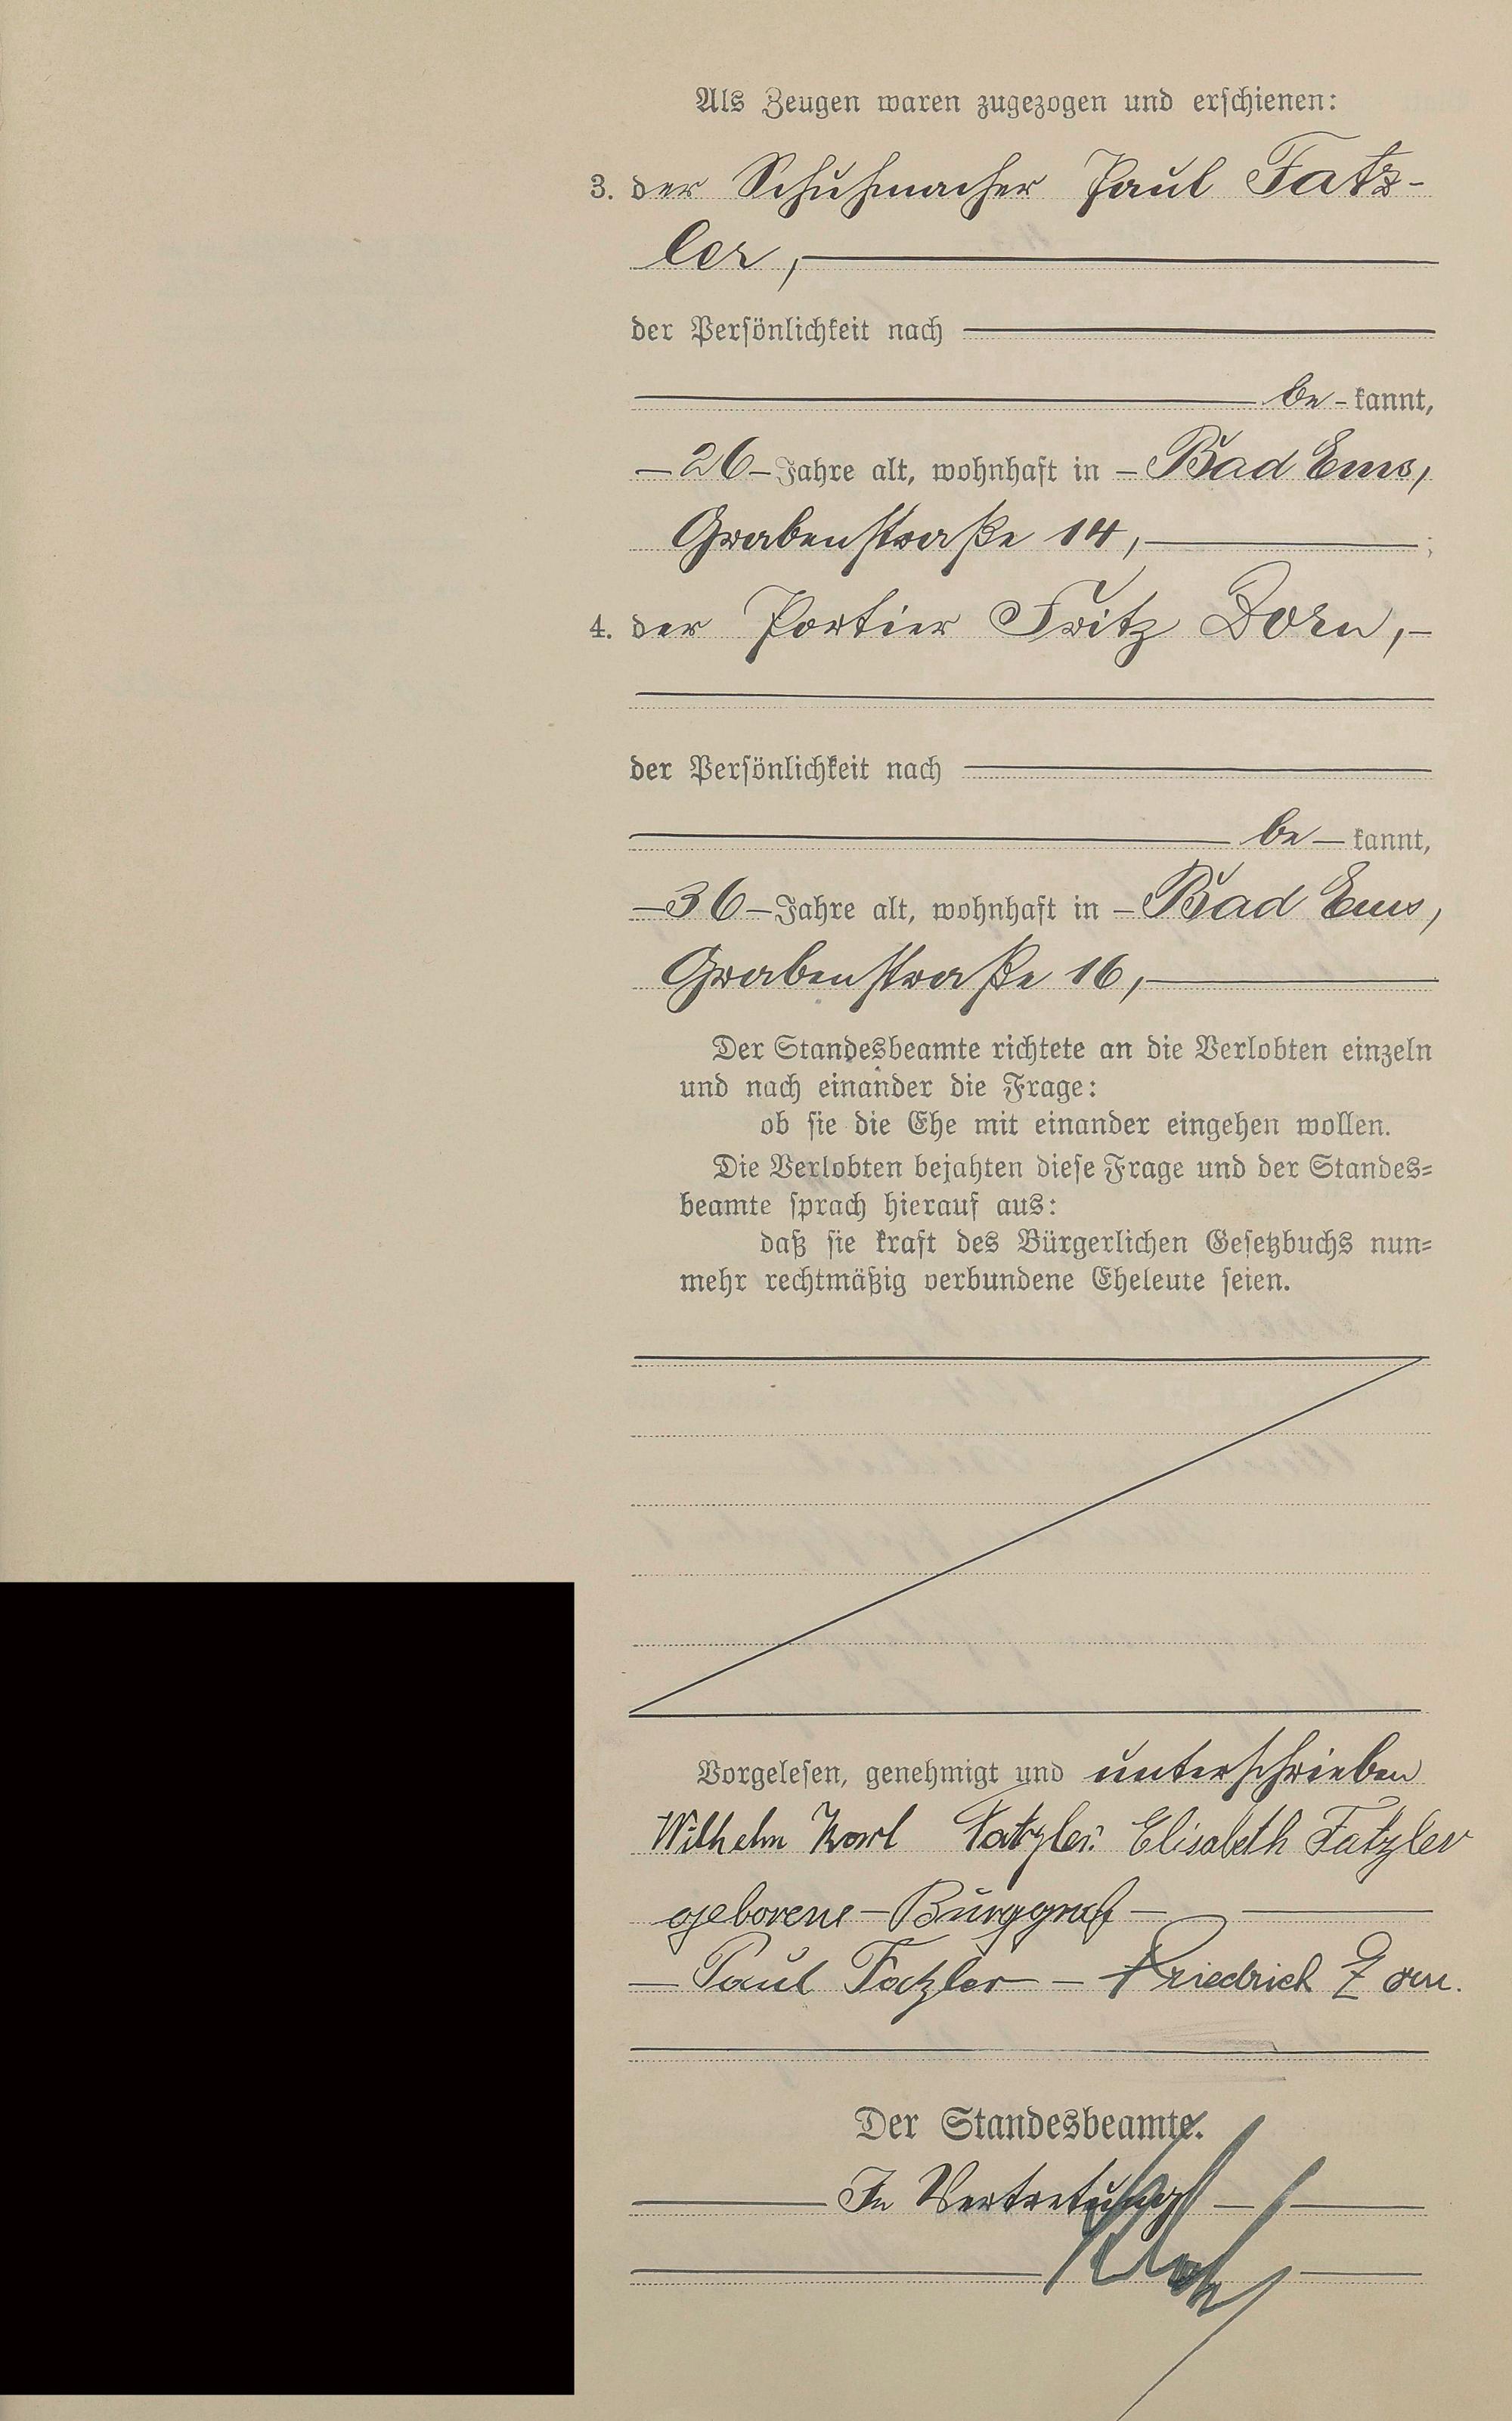 Als Zeugen waren zugezogen und erschienen:
3. der Schuhmacher Paul Fatz-
ler,
der Persönlichkeit nach
be- kannt,
26 Jahre alt, wohnhaft in Bad Ems,
Grabenstraße 14, ;
4. der Portier Fritz Zorn,
der Persönlichkeit nach
be kannt,
36 Jahre alt, wohnhaft in Bad Ems,
Grabenstraße 16,
Der Standesbeamte richtete an die Verlobten einzeln
und nach einander die Frage:
ob sie die Ehe mit einander eingehen wollen.
Die Verlobten bejahten diese Frage und der Standes-
beamte sprach hierauf aus:
daß sie kraft des Bürgerlichen Gesetzbuchs nun-
mehr rechtmäßig verbundene Eheleute seien.
Vorgelesen, genehmigt und unterschrieben
Wilhelm Karl Fatzler. Elisabeth Fatzler
geborene Burggraf
Paul Fatzler Friedrich Zorn.
Der Standesbeamte.
In Vertretung